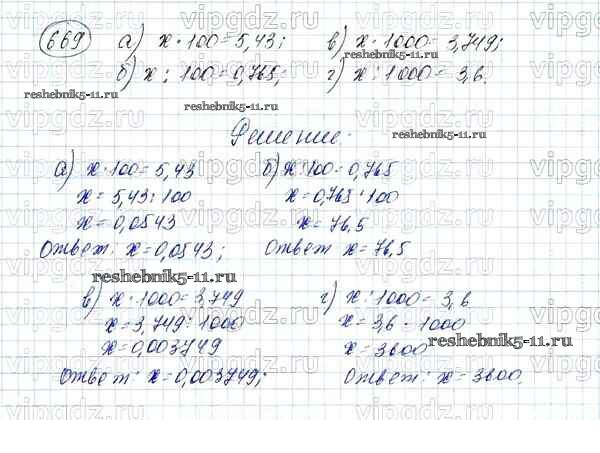 669 а) x · 100 = 5,43; в) x · 1000 = 3,749;
б) x : 100 = 0,765; г) x : 1000 = 3,6.
reshebnik5-11.ru
reshebnik5-11.ru
reshebnik5-11.ru
Решение.
а) x · 100 = 5,43 б) x : 100 = 0,765
x = 5,43 : 100 x = 0,765 · 100
x = 0,0543 x = 76,5
Ответ: x = 0,0543; Ответ x = 76,5
reshebnik5-11.ru
в) x · 1000 = 3,749 г) x : 1000 = 3,6
x = 3,749 : 1000 x = 3,6 · 1000
x = 0,003749 x = 3600
reshebnik5-11.ru
Ответ: x = 0,003749; Ответ: x = 3600.
vipgdz.ru